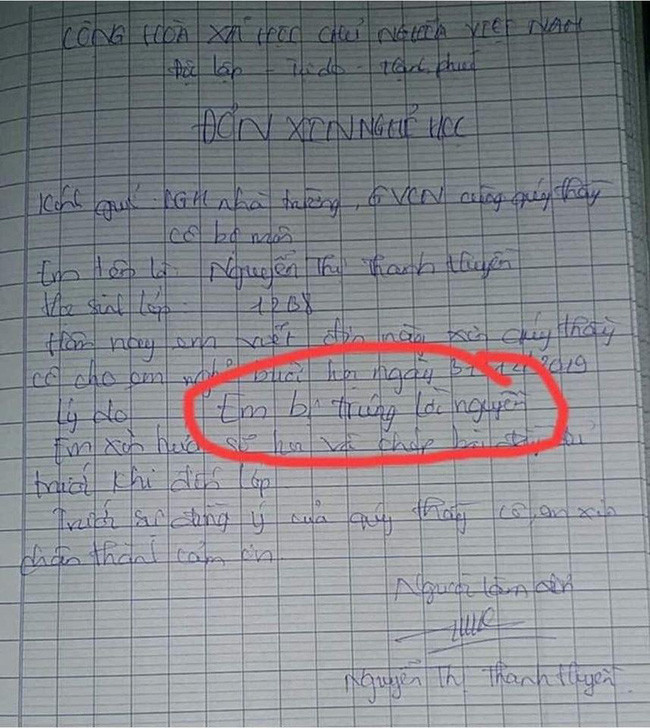 CỘNG HOÀ XÃ HỘI CHỦ NGHĨA VIỆT NAM
Độc lập - Tự do - Hạnh phúc
ĐƠN XIN NGHỈ HỌC
Kính gửi BGH nhà trường, GVCN cùng quý thầy
cô bộ môn
Em tên là Nguyễn Thị Thanh Huyền
Học sinh lớp 12B8
Hôm nay em viết đơn này xin quý thầy
cô cho em nghỉ buổi học ngày 2019
Lý do Em bị trúng lời nguyền
Em xin hứa sẽ học và chép bài đầy đủ
trước khi đến lớp
Trước sự đồng ý của quý thầy cô, em xin
chân thành cảm ơn
Người làm đơn
Nguyễn Thị Thanh Huyền